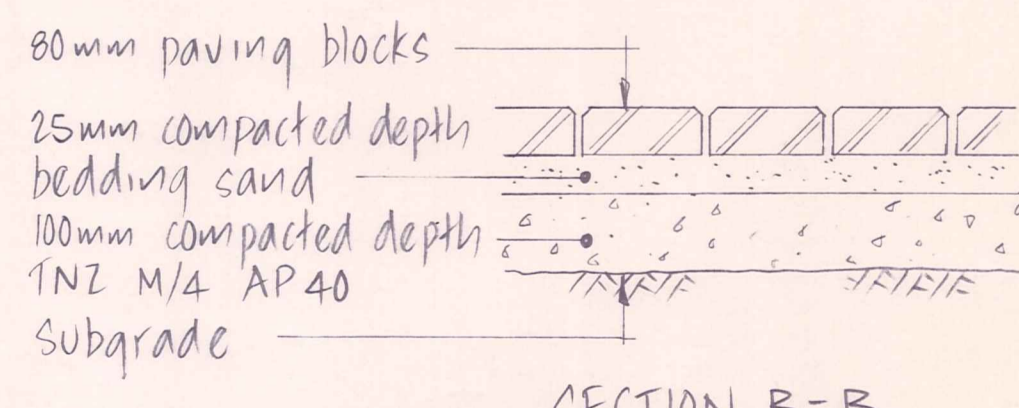 80mm paving blocks
25mm compacted depth
bedding sand
100mm compacted depth
TNZ M/4 AP40
Subgrade
SECTION B-B